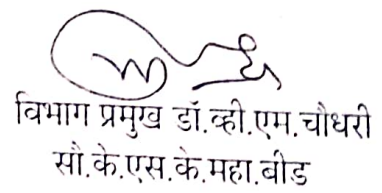 विभाग प्रमुख डॉ.व्ही.एम.चौधरी
सौ.के.एस.के.महा.बीड